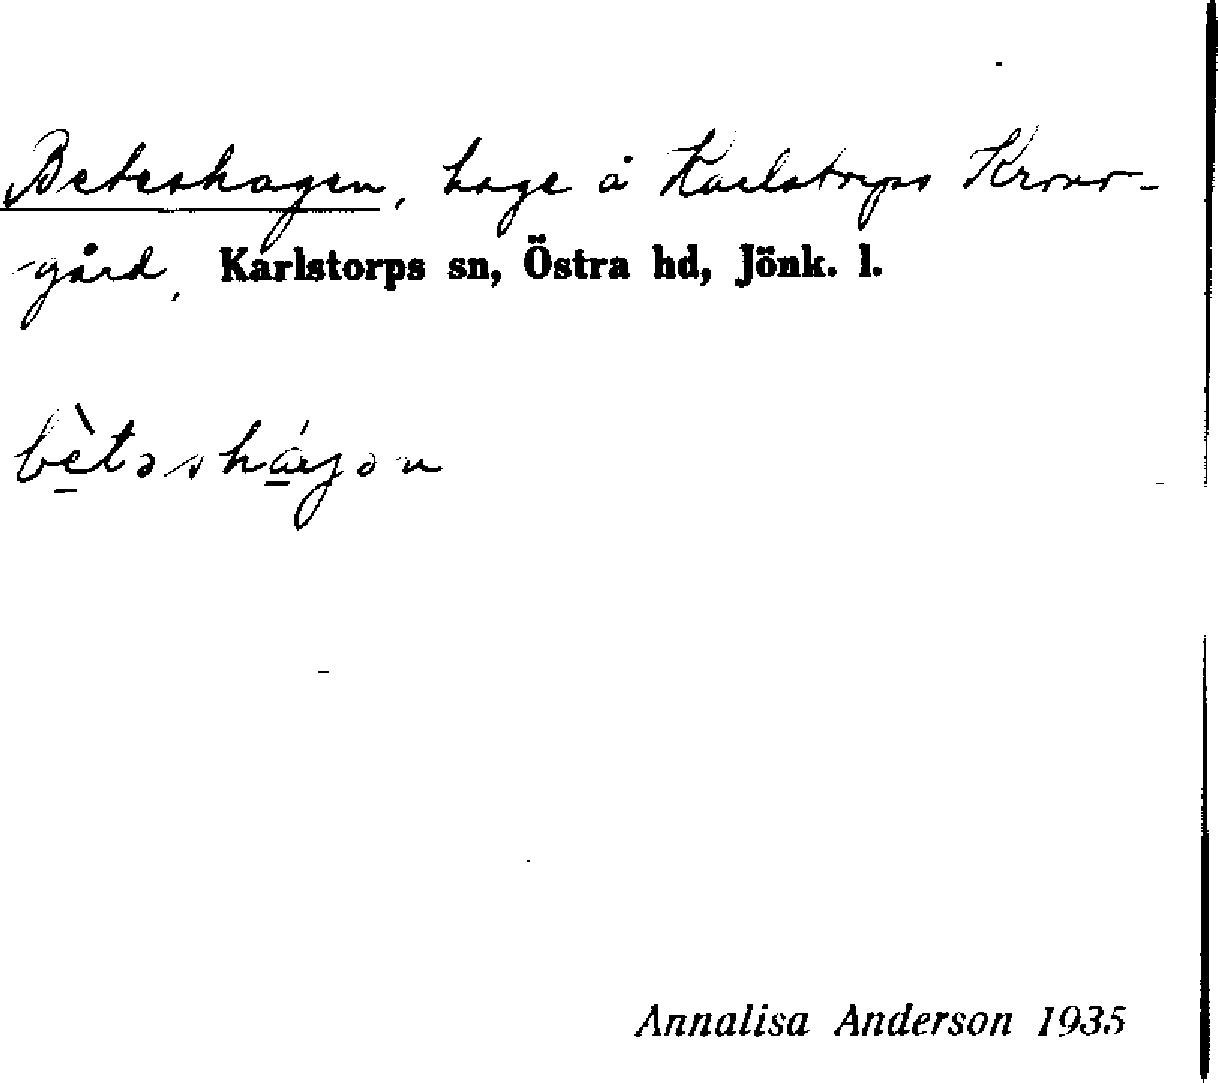 Beteshagen, hage å Karlstorps Krono-
-gård, Karlstorps sn, Östra hd, Jönk. l.
bètəshágən
Annalisa Anderson 1935